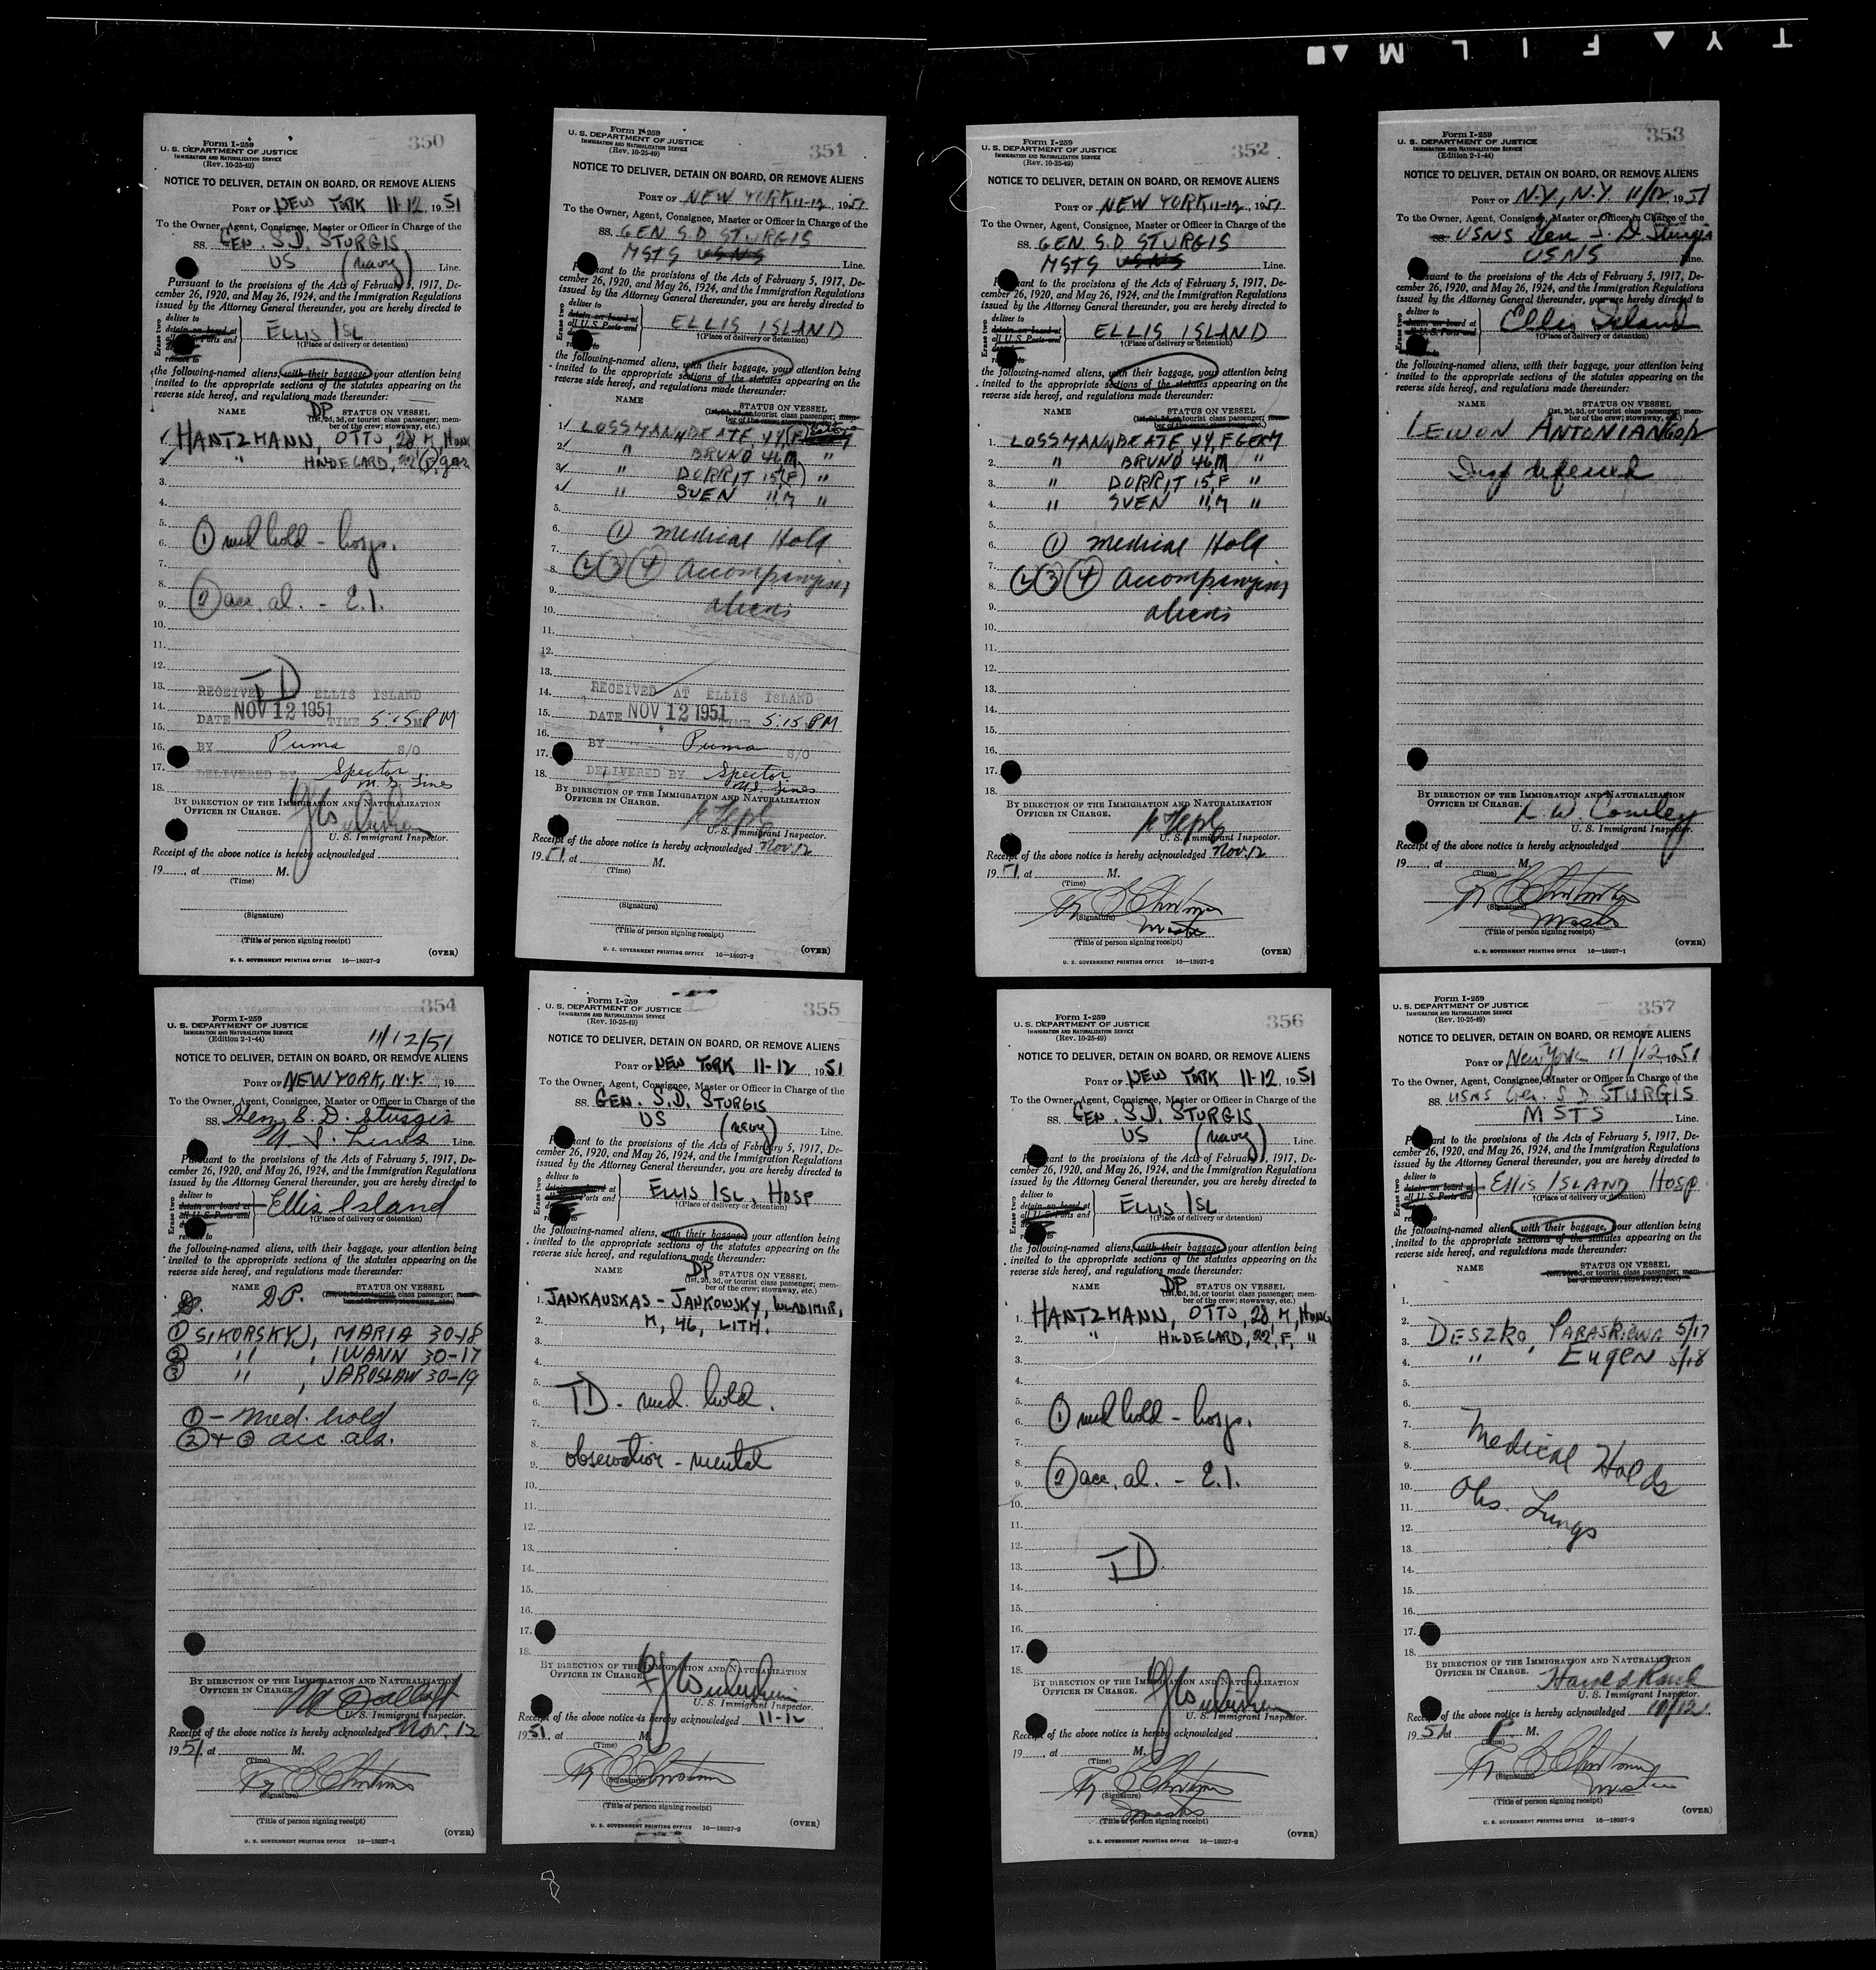 TY▲FILM▲■
350
Form I-259
U. S. DEPARTMENT OF JUSTICE
IMMIGRATION AND NATURALIZATION SERVICE
(Rev. 10-25-49)
NOTICE TO DELIVER, DETAIN ON BOARD, OR REMOVE ALIENS
PORT OF NEW YORK 11-12, 1951
To the Owner, Agent, Consignee, Master or Officer in Charge of the
SS. GEN. S.D. STURGIS
US (Navy) Line.
Pursuant to the provisions of the Acts of February 5, 1917, De-
cember 26, 1920, and May 26, 1924, and the Immigration Regulations
issued by the Attorney General thereunder, you are hereby directed to
Erase two
deliver to
detain on board at
all U.S. Ports and
remove to
ELLIS ISL
†(Place of delivery or detention)
the following-named aliens, with their baggage, your attention being
invited to the appropriate sections of the statutes appearing on the
reverse side hereof, and regulations made thereunder:
NAME DP STATUS ON VESSEL
(1st, 2d, 3d, or tourist class passenger; mem-
ber of the crew; stowaway, etc.)
HANTZMANN, OTTO, 28, M, HUNG
" HILDEGARD, 22, F,
3.
4.
5.
6. ① med hold - hosp.
7.
8.
9. ② acc. al. - E.I.
10.
11.
12.
13. TD
RECEIVED AT ELLIS ISLAND
14.
DATE NOV 12 1951 TIME 5:15 PM
15.
16. BY Puma S/O
17. DELIVERED BY Spector
18. U.S. Lines
BY DIRECTION OF THE IMMIGRATION AND NATURALIZATION
OFFICER IN CHARGE.
U. S. Immigrant Inspector.
Receipt of the above notice is hereby acknowledged
19 , at M.
(Time)
(Signature)
(Title of person signing receipt)
U. S. GOVERNMENT PRINTING OFFICE 16—18927-2 (OVER)
351
Form I-259
U. S. DEPARTMENT OF JUSTICE
IMMIGRATION AND NATURALIZATION SERVICE
(Rev. 10-25-49)
NOTICE TO DELIVER, DETAIN ON BOARD, OR REMOVE ALIENS
PORT OF NEW YORK 11-12, 1951
To the Owner, Agent, Consignee, Master or Officer in Charge of the
SS. GEN. S.D STURGIS
MSTS USNS Line.
Pursuant to the provisions of the Acts of February 5, 1917, De-
cember 26, 1920, and May 26, 1924, and the Immigration Regulations
issued by the Attorney General thereunder, you are hereby directed to
Erase two
deliver to
detain on board at
all U.S. Ports and
remove to
ELLIS ISLAND
†(Place of delivery or detention)
the following-named aliens, with their baggage, your attention being
invited to the appropriate sections of the statutes appearing on the
reverse side hereof, and regulations made thereunder:
NAME STATUS ON VESSEL
(1st, 2d, 3d, or tourist class passenger; mem-
ber of the crew; stowaway, etc.)
1. LOSSMANN, BEATE, 44, F
2. " BRUNO 46 M "
3. " DORRIT 15, F "
4. " SVEN 11, M "
5.
6. ① medical Hold
7.
8. ② ③ ④ accompanying
9. aliens
10.
11.
12.
13.
14. RECEIVED AT ELLIS ISLAND
15. DATE NOV 12 1951 TIME 5:15 PM
16.
17. BY Puma S/O
18. DELIVERED BY Spector
U.S. Lines
BY DIRECTION OF THE IMMIGRATION AND NATURALIZATION
OFFICER IN CHARGE.
U. S. Immigrant Inspector.
Receipt of the above notice is hereby acknowledged Nov. 12
1951, at M.
(Time)
(Signature)
(Title of person signing receipt)
U. S. GOVERNMENT PRINTING OFFICE 16—18927-2 (OVER)
352
Form I-259
U. S. DEPARTMENT OF JUSTICE
IMMIGRATION AND NATURALIZATION SERVICE
(Rev. 10-25-49)
NOTICE TO DELIVER, DETAIN ON BOARD, OR REMOVE ALIENS
PORT OF NEW YORK 11-12, 1951
To the Owner, Agent, Consignee, Master or Officer in Charge of the
SS. GEN. S.D STURGIS
MSTS USNS Line.
Pursuant to the provisions of the Acts of February 5, 1917, De-
cember 26, 1920, and May 26, 1924, and the Immigration Regulations
issued by the Attorney General thereunder, you are hereby directed to
Erase two
deliver to
detain on board at
all U.S. Ports and
remove to
ELLIS ISLAND
†(Place of delivery or detention)
the following-named aliens, with their baggage, your attention being
invited to the appropriate sections of the statutes appearing on the
reverse side hereof, and regulations made thereunder:
NAME STATUS ON VESSEL
(1st, 2d, 3d, or tourist class passenger; mem-
ber of the crew; stowaway, etc.)
1. LOSSMANN, BEATE, 44, F GERM
2. " BRUNO 46 M "
3. " DORRIT 15, F "
4. " SVEN 11, M "
5.
6. ① medical Hold
7.
8. ② ③ ④ accompanying
9. aliens
10.
11.
12.
13.
14.
15.
16.
17.
18.
BY DIRECTION OF THE IMMIGRATION AND NATURALIZATION
OFFICER IN CHARGE.
U. S. Immigrant Inspector.
Receipt of the above notice is hereby acknowledged Nov. 12
1951, at M.
(Time)
(Signature)
Master
(Title of person signing receipt)
U. S. GOVERNMENT PRINTING OFFICE 16—18927-2 (OVER)
353
Form I-259
U. S. DEPARTMENT OF JUSTICE
IMMIGRATION AND NATURALIZATION SERVICE
(Edition 2-1-44)
NOTICE TO DELIVER, DETAIN ON BOARD, OR REMOVE ALIENS
PORT OF N.Y., N.Y. 11/12, 1951
To the Owner, Agent, Consignee, Master or Officer in Charge of the
SS. USNS Gen S. D. Sturgis
USNS Line.
Pursuant to the provisions of the Acts of February 5, 1917, De-
cember 26, 1920, and May 26, 1924, and the Immigration Regulations
issued by the Attorney General thereunder, you are hereby directed to
Erase two
deliver to
detain on board at
all U.S. Ports and
remove to
Ellis Island
†(Place of delivery or detention)
the following-named aliens, with their baggage, your attention being
invited to the appropriate sections of the statutes appearing on the
reverse side hereof, and regulations made thereunder:
NAME STATUS ON VESSEL
(1st, 2d, 3d, or tourist class passenger; mem-
ber of the crew; stowaway, etc.)
LEWON ANTONIAN
Insp deferred
BY DIRECTION OF THE IMMIGRATION AND NATURALIZATION
OFFICER IN CHARGE.
U. S. Immigrant Inspector.
Receipt of the above notice is hereby acknowledged
19 , at M.
(Time)
(Signature)
Master
(Title of person signing receipt)
U. S. GOVERNMENT PRINTING OFFICE 16—18927-1 (OVER)
354
Form I-259
U. S. DEPARTMENT OF JUSTICE
IMMIGRATION AND NATURALIZATION SERVICE
(Edition 2-1-44)
11/12/51
NOTICE TO DELIVER, DETAIN ON BOARD, OR REMOVE ALIENS
PORT OF NEW YORK, N.Y., 19
To the Owner, Agent, Consignee, Master or Officer in Charge of the
SS. Gen. S. D. Sturgis
U. S. Lines Line.
Pursuant to the provisions of the Acts of February 5, 1917, De-
cember 26, 1920, and May 26, 1924, and the Immigration Regulations
issued by the Attorney General thereunder, you are hereby directed to
Erase two
deliver to
detain on board at
all U.S. Ports and
remove to
Ellis Island
†(Place of delivery or detention)
the following-named aliens, with their baggage, your attention being
invited to the appropriate sections of the statutes appearing on the
reverse side hereof, and regulations made thereunder:
NAME D.P. STATUS ON VESSEL
(1st, 2d, 3d, or tourist class passenger; mem-
ber of the crew; stowaway, etc.)
① SIKORSKYJ, MARIA 30-18
② " , IWANN 30-17
③ " , JAROSLAW 30-19
① - Med. hold
② + ③ acc als.
BY DIRECTION OF THE IMMIGRATION AND NATURALIZATION
OFFICER IN CHARGE.
U. S. Immigrant Inspector.
Receipt of the above notice is hereby acknowledged Nov. 12
1951, at M.
(Time)
(Signature)
(Title of person signing receipt)
U. S. GOVERNMENT PRINTING OFFICE 16—18927-1 (OVER)
355
Form I-259
U. S. DEPARTMENT OF JUSTICE
IMMIGRATION AND NATURALIZATION SERVICE
(Rev. 10-25-49)
NOTICE TO DELIVER, DETAIN ON BOARD, OR REMOVE ALIENS
PORT OF NEW YORK 11-12, 1951
To the Owner, Agent, Consignee, Master or Officer in Charge of the
SS. GEN. S.D. STURGIS
US (Navy) Line.
Pursuant to the provisions of the Acts of February 5, 1917, De-
cember 26, 1920, and May 26, 1924, and the Immigration Regulations
issued by the Attorney General thereunder, you are hereby directed to
Erase two
deliver to
detain on board at
all U.S. Ports and
remove to
ELLIS ISL, HOSP
†(Place of delivery or detention)
the following-named aliens, with their baggage, your attention being
invited to the appropriate sections of the statutes appearing on the
reverse side hereof, and regulations made thereunder:
NAME DP STATUS ON VESSEL
(1st, 2d, 3d, or tourist class passenger; mem-
ber of the crew; stowaway, etc.)
1. JANKAUSKAS - JANKOWSKY, WLADIMIR,
2. M, 46, LITH.
3.
4.
5.
6. TD - med. hold.
7.
8.
9. observation - mental
10.
11.
12.
13.
14.
15.
16.
17.
18.
BY DIRECTION OF THE IMMIGRATION AND NATURALIZATION
OFFICER IN CHARGE.
U. S. Immigrant Inspector.
Receipt of the above notice is hereby acknowledged 11-12
1951, at M.
(Time)
(Signature)
(Title of person signing receipt)
U. S. GOVERNMENT PRINTING OFFICE 16—18927-2 (OVER)
356
Form I-259
U. S. DEPARTMENT OF JUSTICE
IMMIGRATION AND NATURALIZATION SERVICE
(Rev. 10-25-49)
NOTICE TO DELIVER, DETAIN ON BOARD, OR REMOVE ALIENS
PORT OF NEW YORK 11-12, 1951
To the Owner, Agent, Consignee, Master or Officer in Charge of the
SS. GEN. S.D. STURGIS
US (Navy) Line.
Pursuant to the provisions of the Acts of February 5, 1917, De-
cember 26, 1920, and May 26, 1924, and the Immigration Regulations
issued by the Attorney General thereunder, you are hereby directed to
Erase two
deliver to
detain on board at
all U.S. Ports and
remove to
ELLIS ISL
†(Place of delivery or detention)
the following-named aliens, with their baggage, your attention being
invited to the appropriate sections of the statutes appearing on the
reverse side hereof, and regulations made thereunder:
NAME DP STATUS ON VESSEL
(1st, 2d, 3d, or tourist class passenger; mem-
ber of the crew; stowaway, etc.)
1. HANTZMANN, OTTO, 28, M, HUNG
2. " HILDEGARD, 22, F, "
3.
4.
5.
6. ① med hold - hosp.
7.
8.
9. ② acc. al. - E.I.
10.
11.
12.
13. TD
14.
15.
16.
17.
18.
BY DIRECTION OF THE IMMIGRATION AND NATURALIZATION
OFFICER IN CHARGE.
U. S. Immigrant Inspector.
Receipt of the above notice is hereby acknowledged
19 , at M.
(Time)
(Signature)
Master
(Title of person signing receipt)
U. S. GOVERNMENT PRINTING OFFICE 16—18927-2 (OVER)
357
Form I-259
U. S. DEPARTMENT OF JUSTICE
IMMIGRATION AND NATURALIZATION SERVICE
(Rev. 10-25-49)
NOTICE TO DELIVER, DETAIN ON BOARD, OR REMOVE ALIENS
PORT OF New York 11/12 1951
To the Owner, Agent, Consignee, Master or Officer in Charge of the
SS. USNS Gen. S D STURGIS
MSTS Line.
Pursuant to the provisions of the Acts of February 5, 1917, De-
cember 26, 1920, and May 26, 1924, and the Immigration Regulations
issued by the Attorney General thereunder, you are hereby directed to
Erase two
deliver to
detain on board at
all U.S. Ports and
remove to
ELLIS ISLAND HOSP
†(Place of delivery or detention)
the following-named aliens, with their baggage, your attention being
invited to the appropriate sections of the statutes appearing on the
reverse side hereof, and regulations made thereunder:
NAME STATUS ON VESSEL
(1st, 2d, 3d, or tourist class passenger; mem-
ber of the crew; stowaway, etc.)
1.
2.
3. DESZKO, PARASKEWA 5/17
4. " EUGEN 5/18
5.
6.
7.
8. Medical Holds
9.
10. Obs. Lungs
11.
12.
13.
14.
15.
16.
17.
18.
BY DIRECTION OF THE IMMIGRATION AND NATURALIZATION
OFFICER IN CHARGE.
U. S. Immigrant Inspector.
Receipt of the above notice is hereby acknowledged 11/12
1951 at P. M.
(Time)
(Signature)
Master
(Title of person signing receipt)
U. S. GOVERNMENT PRINTING OFFICE 16—18927-2 (OVER)